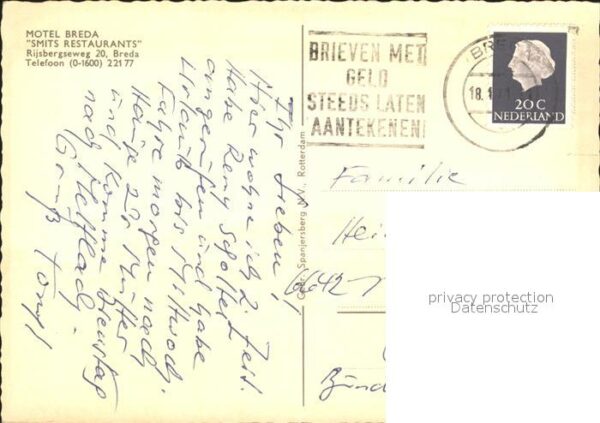 MOTEL BREDA
"SMITS RESTAURANTS"
Rijsbergseweg 20, Breda
Telefoon (0-1600) 22177
Ihr Lieben,
Hier wohne ich z. Zeit.
Habe
angerufen und habe
Urlaub bis Mittwoch.
Fahre morgen nach
Hause zur Mutter
und komme Dienstag
nach
Gruß
Spanjersberg N.V., Rotterdam
BRIEVEN MET
GELD
STEEDS LATEN
AANTEKENEN!
BRE
18.1
20 C
NEDERLAND
Familie
Hei
6642
privacy protection
Datenschutz